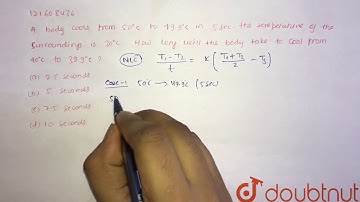 121608436
A body cools from 50°c to 49.9°c in 5 sec. the temperature of the
surroundings is 30°c. How long will the body take to cool from
40°c to 39.9°c ? NLC T₁-T₂/t = K(T₁+T₂/2 - Tₛ)
(a) 2.5 seconds Case-1 50°c → 49.9°c (5sec)
(b) 5 seconds 50
(c) 7.5 seconds
(d) 10 seconds
doubtnut